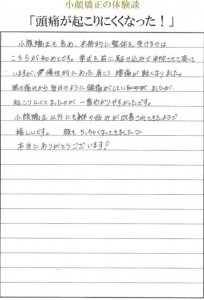 小顔矯正の体験談
「頭痛が起こりにくくなった！」
小顔矯正も含め、本格的に整体を受けるのは
こちらが初めてです。挙式を前に駆け込みで来院させて頂いて
いますが、慢性的にあった肩こり、腰痛が軽くなりました。
眼の疲れから毎日のように頭痛がしていましたが
起こりにくくなったのが一番わかりやすかったです。
小顔矯正以外にも体の悩みが改善されてきたようで
嬉しいです。顔もちっちゃくなってきました♡
本当にありがとうございます！